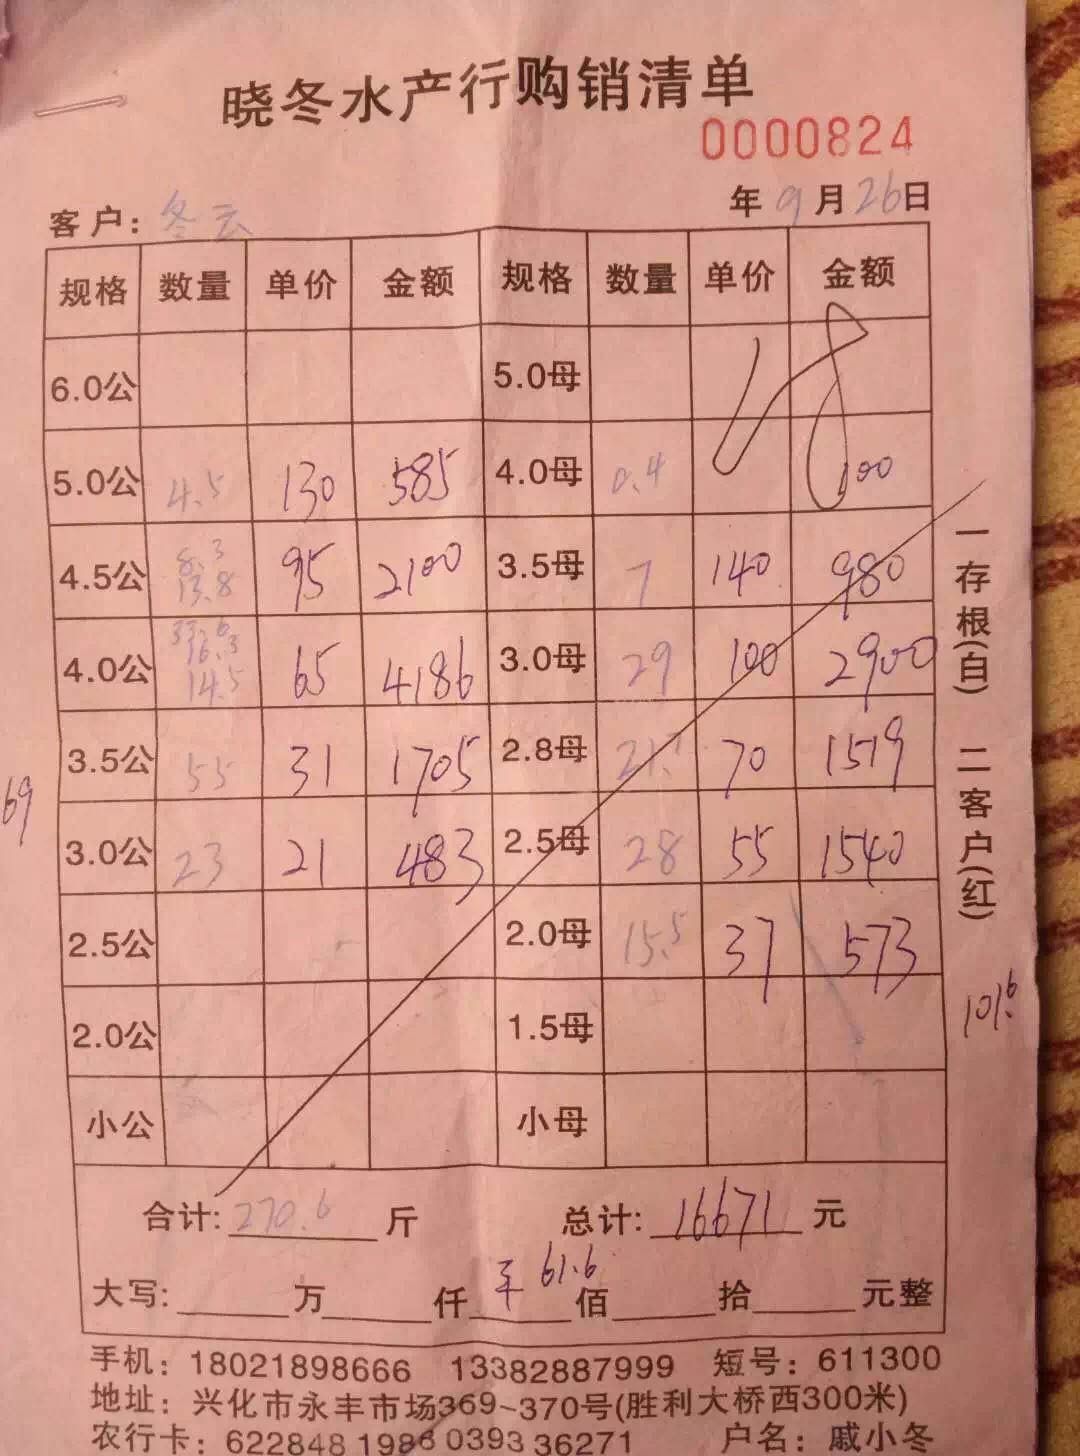 晓冬水产行购销清单
0000824
客户：冬云 年9月26日
规格 数量 单价 金额 规格 数量 单价 金额
6.0公 5.0母
5.0公 4.5 130 585 4.0母 0.4 100
4.5公 8.3 13.8 95 2100 3.5母 7 140 980
4.0公 33.6 16.3 14.5 65 4186 3.0母 29 100 2900
3.5公 55 31 1705 2.8母 21.7 70 1519
3.0公 23 21 483 2.5母 28 55 1540
2.5公 2.0母 15.5 37 573
2.0公 1.5母
小公 小母
一存根(白) 二客户(红)
69
101.6
合计：270.6斤 总计：16671元
平 61.6
大写：万仟佰拾元整
手机：18021898666 13382887999 短号：611300
地址：兴化市永丰市场369~370号(胜利大桥西300米)
农行卡：622848 1986 0393 36271 户名：戚小冬